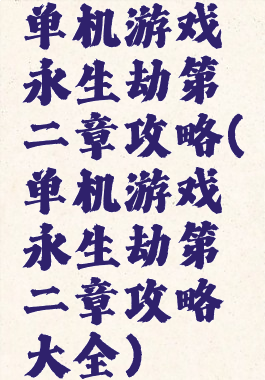 单机游戏
永生劫第
二章攻略(
单机游戏
永生劫第
二章攻略
大全)